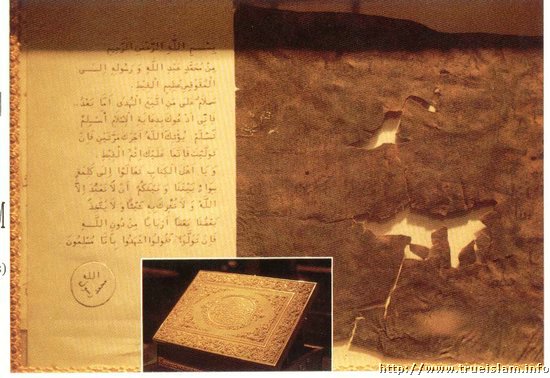 بسم الله الرحمن الرحيم
من محمد عبد الله و رسوله إلى
المقوقس عظيم القبط.
سلام على من اتبع الهدى أما بعد..
فإني أدعوك بدعاية الإسلام أسلم
تسلم يؤتك الله أجرك مرتين فإن
توليت فإنما عليك إثم القبط
و يا أهل الكتاب تعالوا إلى كلمة
سواء بيننا و بينكم أن لا نعبد إلا
الله و لا نشرك به شيئا و لا يتخذ
بعضنا بعضا أربابا من دون الله
فإن تولوا فقولوا اشهدوا بأنا مسلمون
الله
رسول
محمد
http://www.trueislam.info